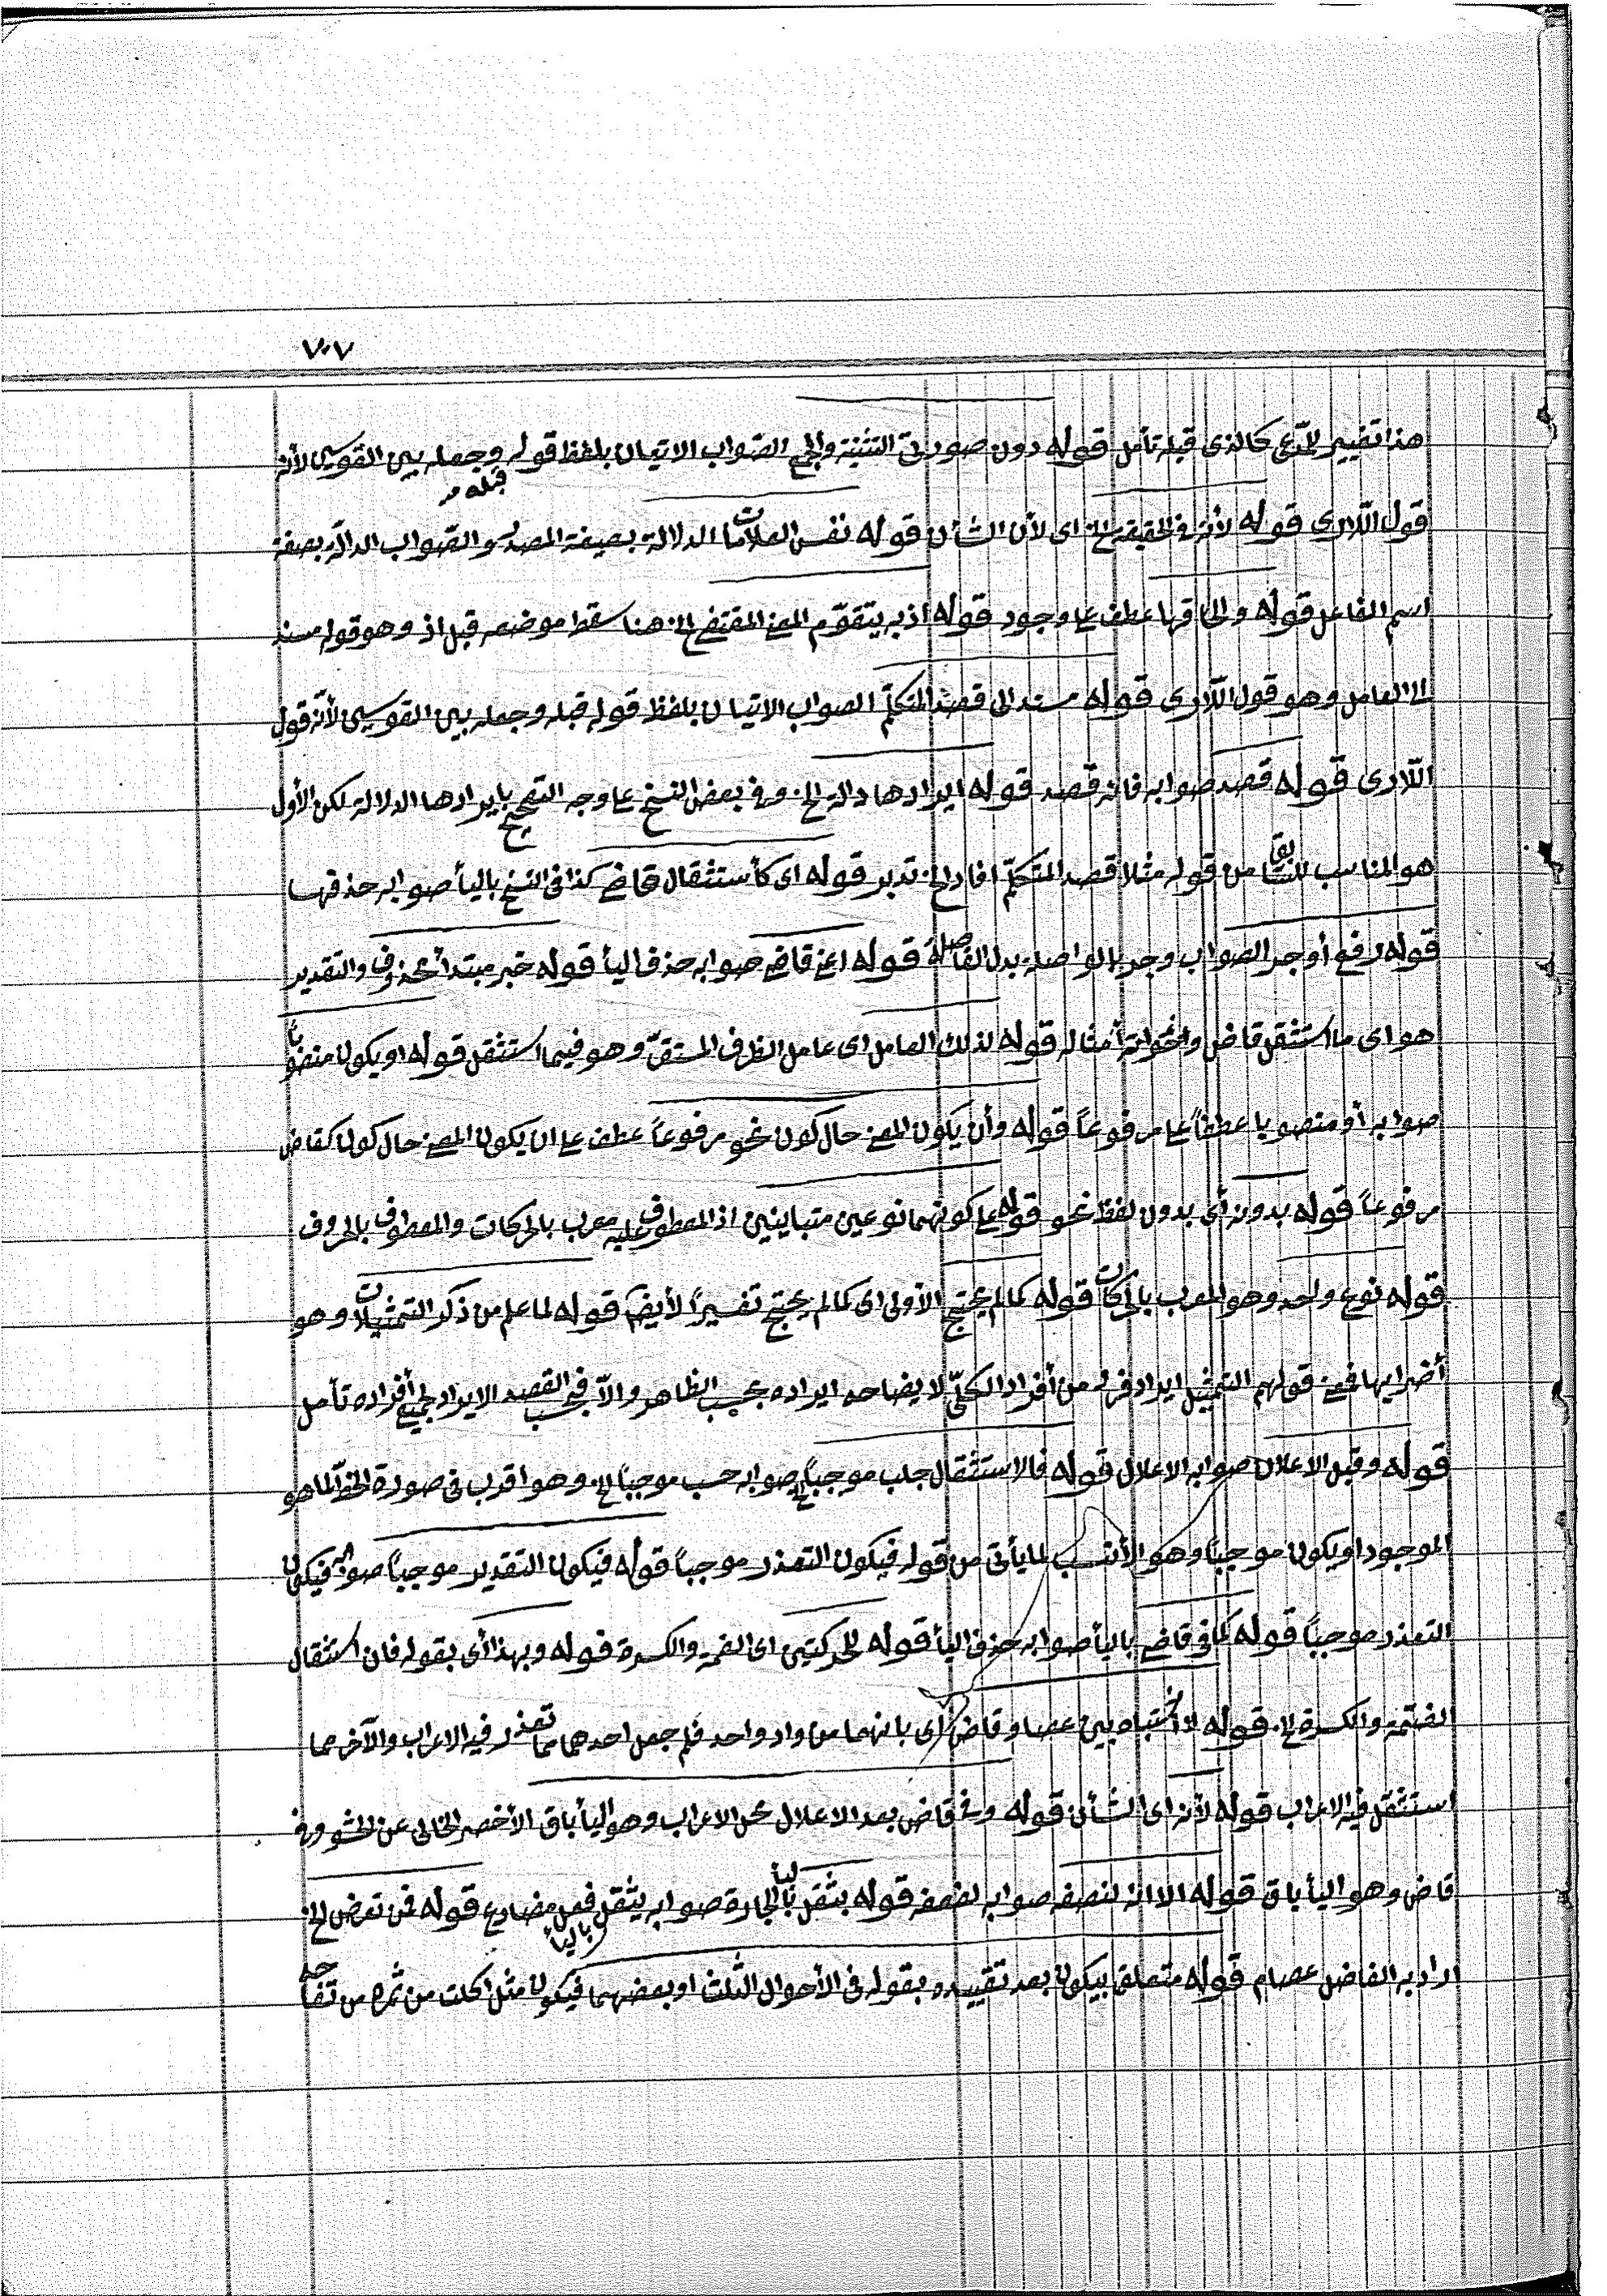 ٧٠٧
هذا تغيير للمدّعى كالذى قبله تأمل قوله دون صورتى التثنية والجمع الصّواب الاتيان بلفظ قوله قبله وجعله بين القوسين لأنّه
قول اللّارى قوله لأنّه فى الحقيقة الخ اى لأن الشأن قوله نفس العلامات الدلالة بصيغة المصدر والصّواب الدالّة بصيغة
اسم الفاعل قوله والحاقها عطف على وجود قوله اذ به يتقوّم المعنى المقتضى الخ هنا سقط موضعه قبل اذ وهو قوله مسند
الى العامل وهو قول اللّارى قوله مسند الى قصد المتكلّم الصواب الاتيان بلفظ قوله قبله وجعله بين القوسين لأنّه قول
اللّارى قوله قصد صوابه فانه قصد قوله ايرادها دالة الخ وفى بعض النسخ على وجه التصحيح بايرادها الدلالة لكن الأول
هو المناسب للسّابق من قوله مثلا قصد المتكلّم افاد الخ تدبر قوله اى كأستثقال قاضى كذا فى النسخ باليأ صوابه حذفها
قوله رفع أو جر الصواب وجر بالواصلة بدل الفاصلة قوله اعنى قاضى صوابه حذف اليأ قوله خبر مبتدأ محذوف والتقدير
هو اى ما استثقل قاض وأخواته أمثاله قوله لذلك العامل اى عامل الظرف المستقرّ وهو فيما استثقل قوله او يكون منصوباً
صوابه أو منصوبا عطفاً على مرفوعاً قوله وأن يكون المعنى حال كون نحو مرفوعاً عطف على ان يكون المعنى حال كون كقاض
مرفوعاً قوله بدونه أى بدون لفظ نحو قوله على كونهما نوعين متباينين اذ المعطوف عليه معرب بالحركات والمعطوف بالحروف
قوله نوع واحد وهو المعرب بالحركات قوله كما لم يحتج الأولى اى كما لم يحتج تفسيراً لأيضاً قوله لما علم من ذكر التمثيلات وهو
أضرابها فمعنى قولهم التمثيل ايراد فرد من أفراد الكلّى لايضاحه ايراده بحسب الظاهر والاّ فبحسب القصد الايراد لجميع أفراده تأمل
قوله وقبل الاعلان صوابه الاعلال قوله فالاستثقال جلب موجباً الخ صوابه حسب موجباً الخ وهو اقرب فى صورة الخطّ لما هو
الموجود او يكون موجباً وهو الأنسب لما يأتى من قوله فيكون التعذر موجباً قوله فيكون التقدير موجباً صوابه فيكون
التعذر موجباً قوله كما فى قاضى باليأ صوابه حذف اليأ قوله للحركتين اى الضمة والكسرة قوله وبهذا أى بقوله فان استثقال
الضّمّة والكسرة الخ قوله لاشتباه بين عصا وقاض اى بانهما من واد واحد فلم جعل احدهما مما تعذر فيه الاعراب والآخر مما
استثقل فيه الاعراب قوله لأنه اى الشأن قوله وفى قاض بعد الاعلال محل الاعراب وهو اليأ باق الأخصر الخالى عن الحشو وفى
قاض وهو اليأ باق قوله الا انه لنصفه صوابه لضعفه قوله بثقل باليأ الجارة صوابه يثقل باليأ فعل مضارع قوله فمن تعرض الخ
اراد به الفاضل عصام قوله متعلق بيكون بعد تقييده بقوله فى الأحوال الثلث او بعضهما فيكون مثل اكلت من ثمره من تفاحه